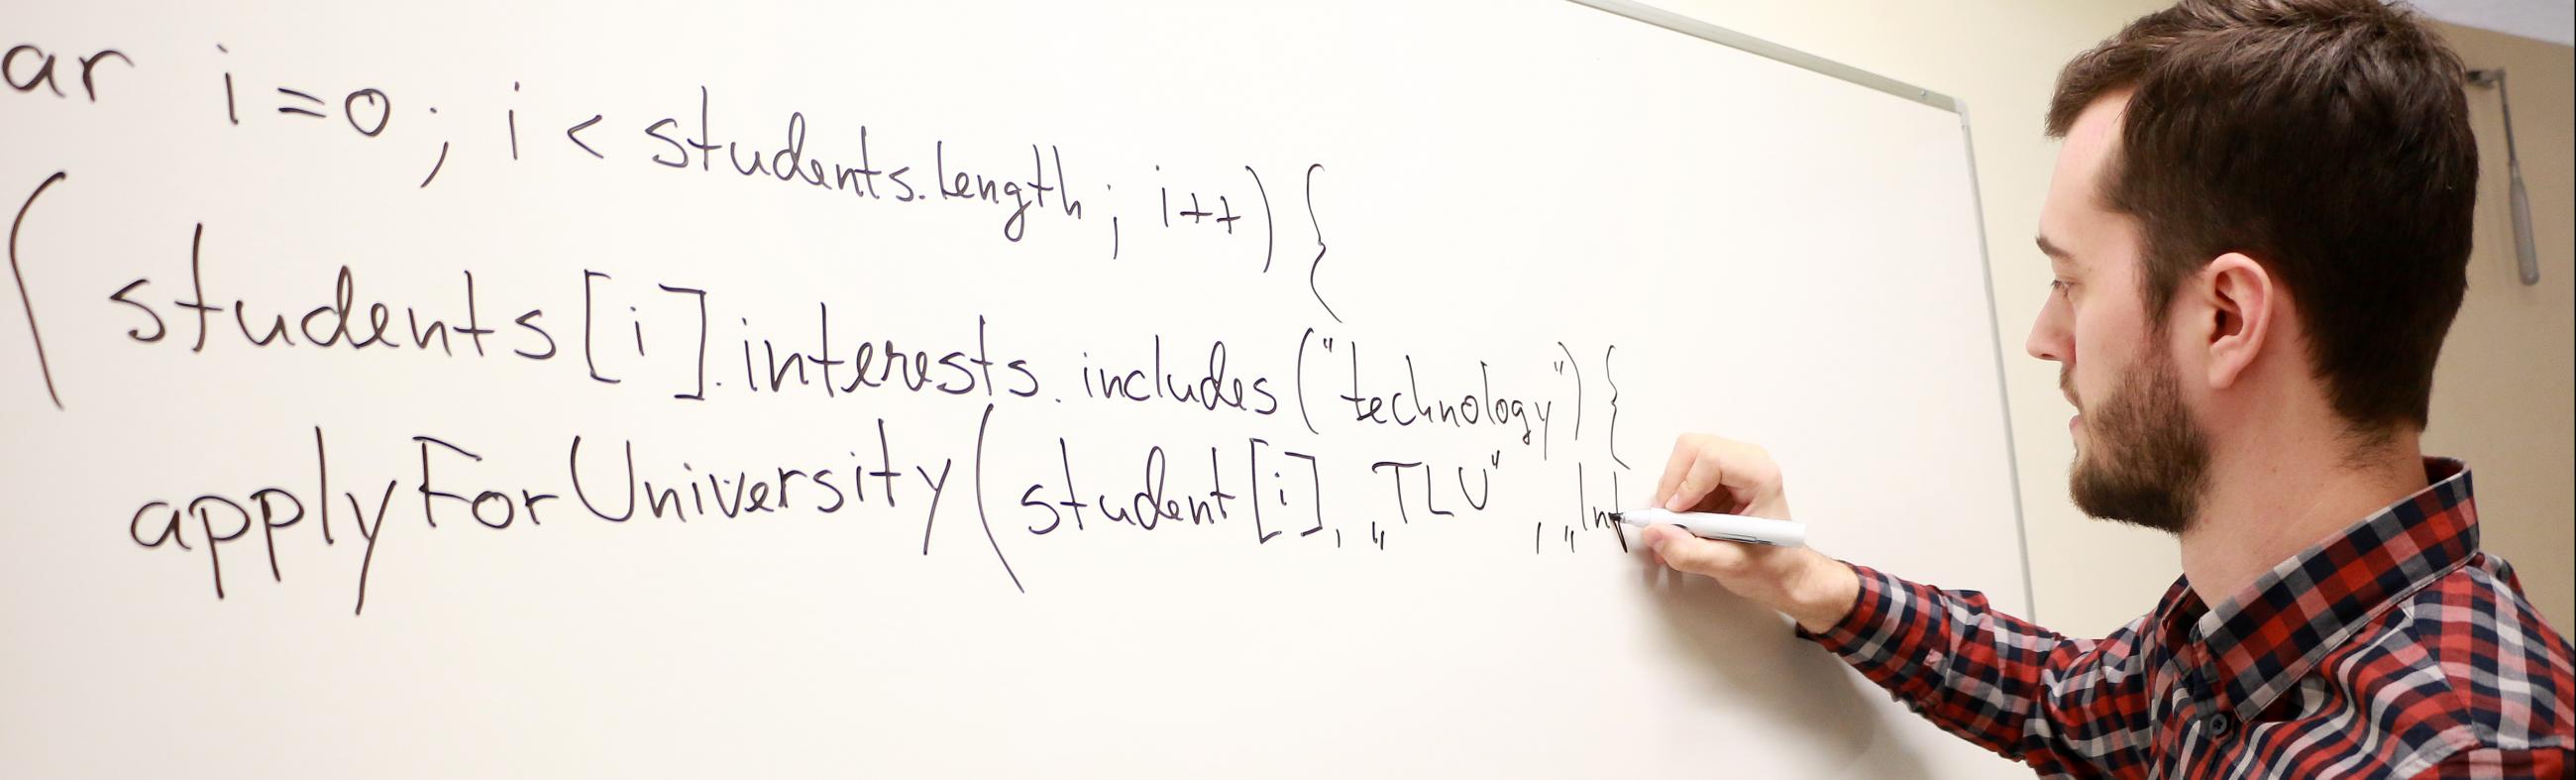 ar i=0; i < students.length; i++) {
( students[i].interests.includes("technology") {
applyForUniversity(student[i], „TLU", „Inf